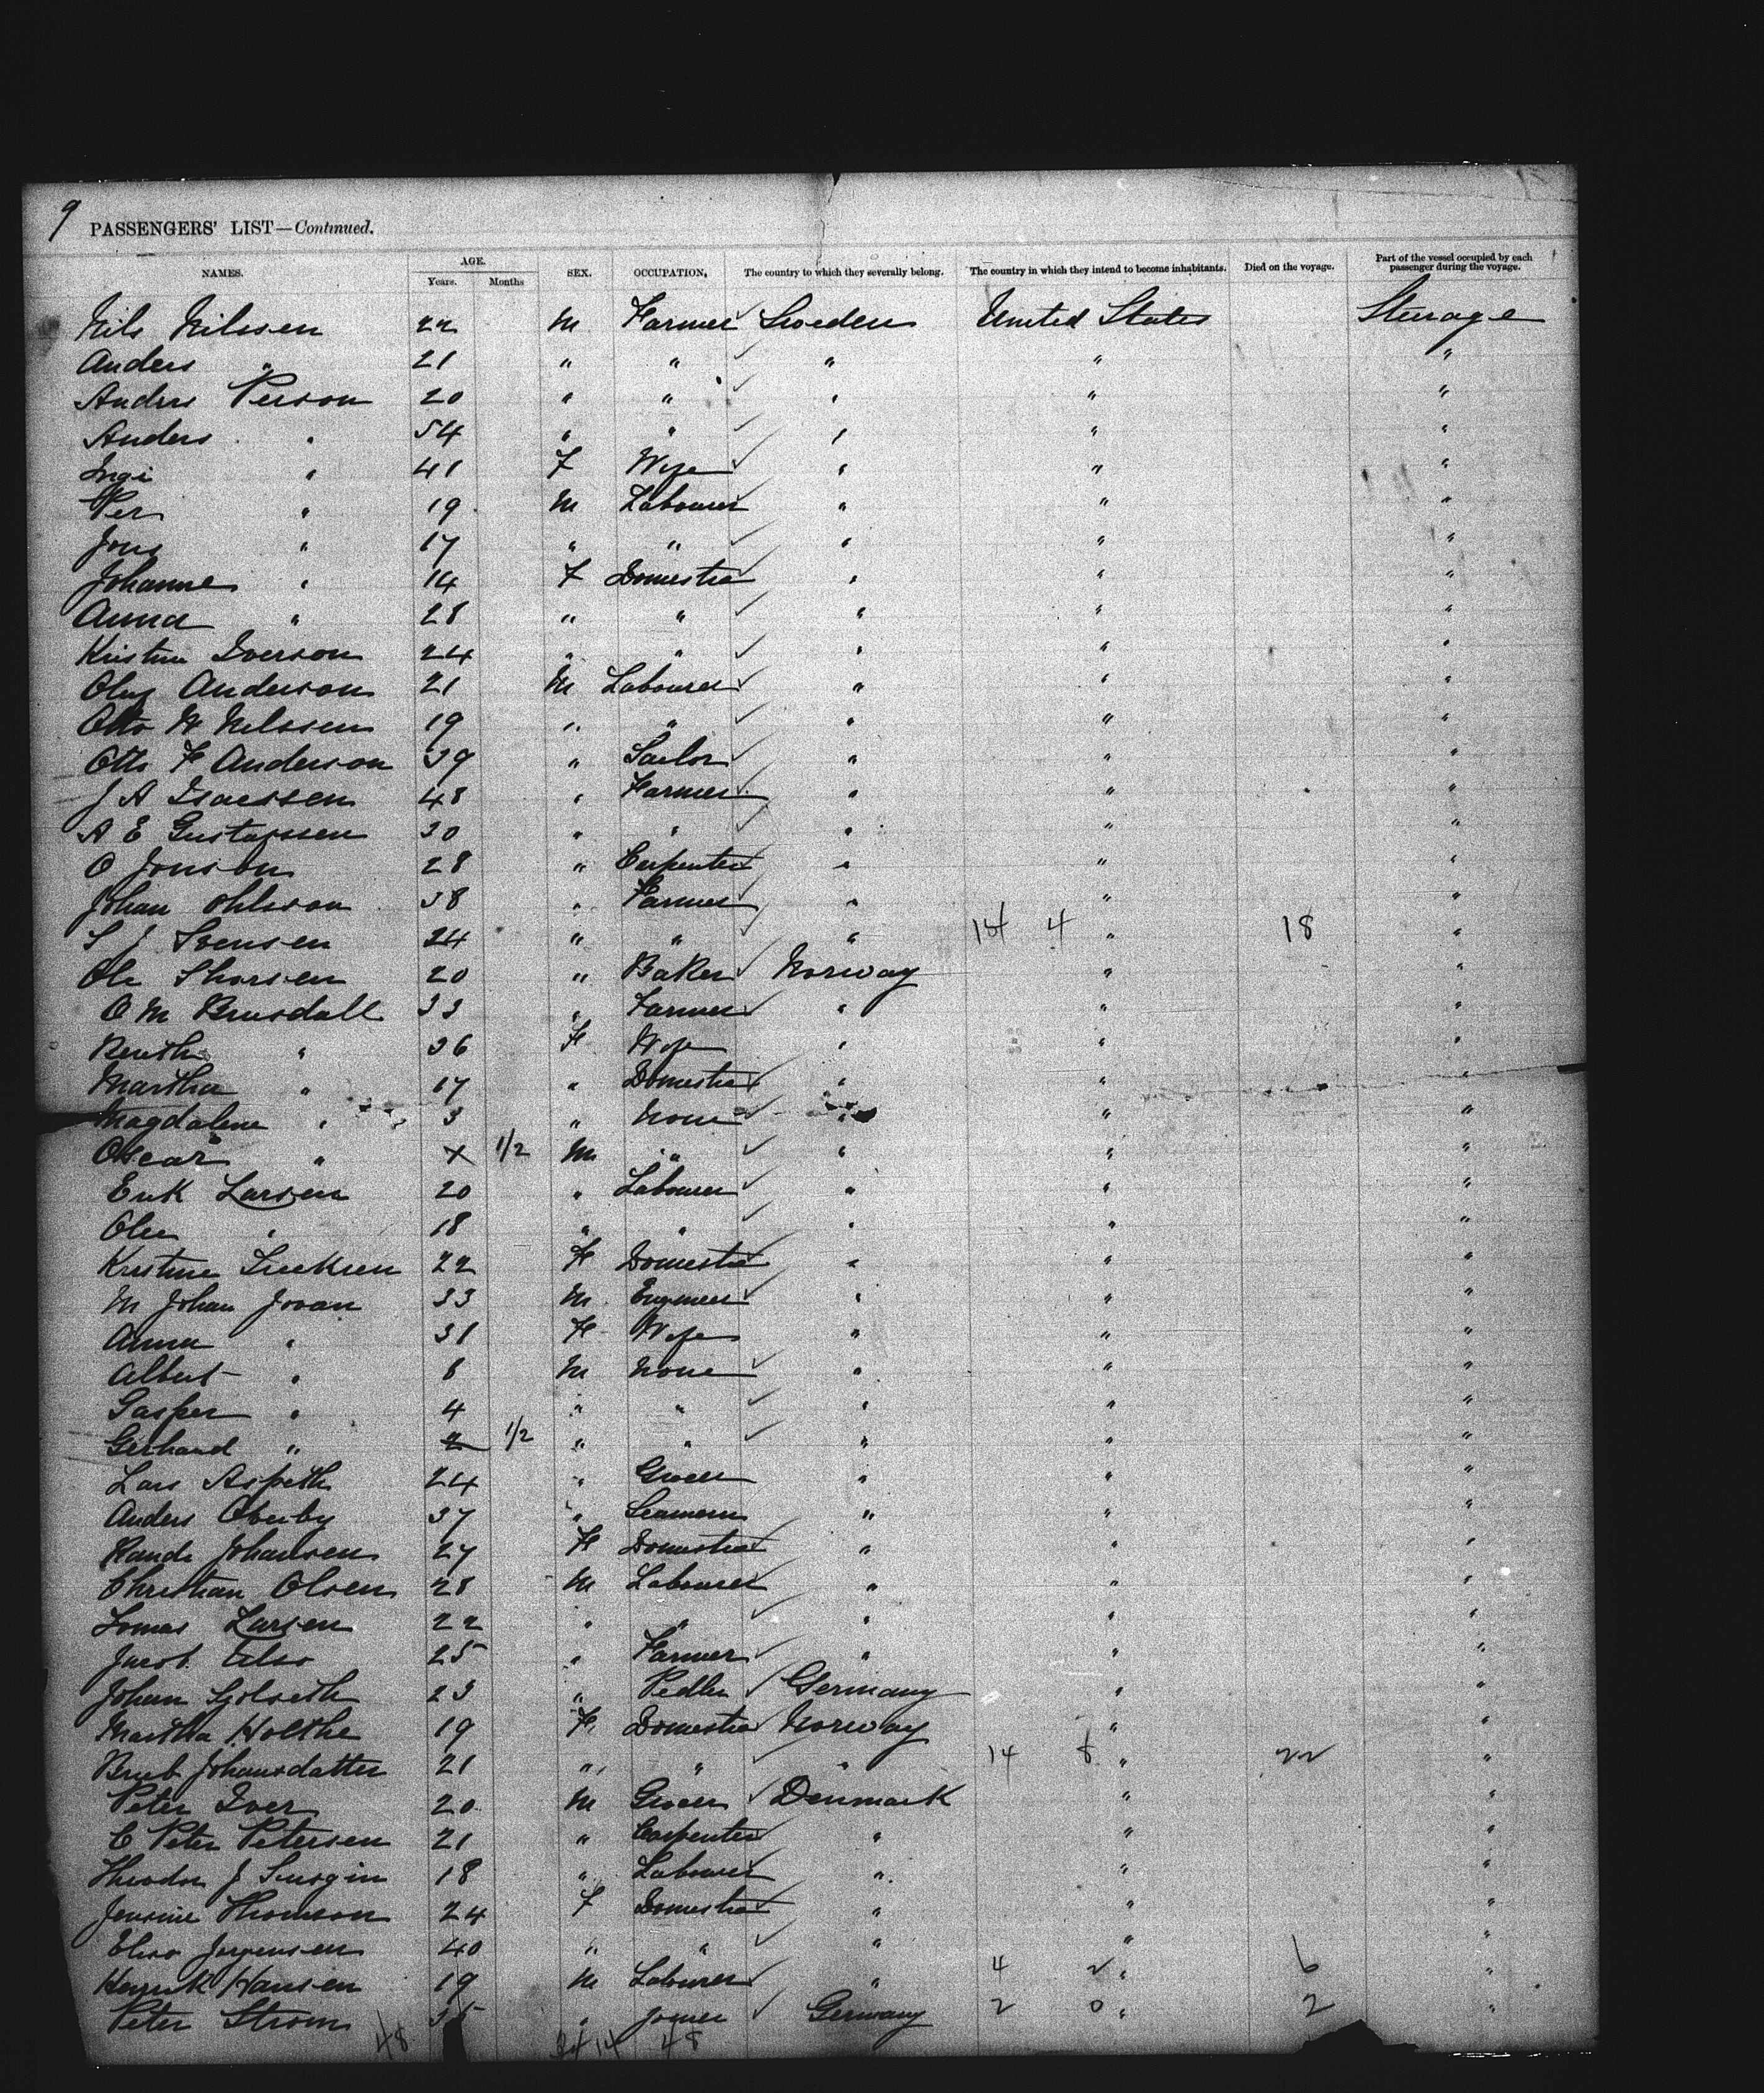 9 PASSENGERS' LIST—Continued.
NAMES. AGE. Years. Months SEX. OCCUPATION, The country to which they severally belong. The country in which they intend to become inhabitants. Died on the voyage. Part of the vessel occupied by each passenger during the voyage.
Nils Nilssen 22 M Farmer Sweden United States Steerage
Anders " 21 " " " " "
Anders Person 20 " " " " "
Anders " 54 " " " " "
Inga " 41 F Wife " " "
Per " 19 M Labourer " " "
Jons " 17 " " " " "
Johanne " 14 F Domestic " " "
Anna " 28 " " " " "
Kristine Iverson 24 " " " " "
Oluf Anderson 21 M Labourer " " "
Otto W Nilssen 19 " " " " "
Otto F Anderson 39 " Sailor " " "
J A Isaessen 48 " Farmer " " "
A E Gustafssen 30 " " " " "
O Jonson 28 " Carpenter " " "
Johan Ohlsson 38 " Farmer " " "
S J Svensen 24 " " " 14 4 " 18 "
Ole Thorsen 20 " Baker Norway " "
O M Brusdall 33 " Farmer " " "
Berith " 36 F Wife " " "
Martha " 17 " Domestic " " "
Magdalene " 3 " None " " "
Oscar " x 1/2 M " " " "
Erik Larsen 20 " Labourer " " "
Ole " 18 " " " " "
Kristine 22 F Domestic " " "
M Johan Jovan 33 M Engineer " " "
Anna " 31 F Wife " " "
Albert " 6 M None " " "
Gasper " 4 " " " " "
Gerhard " 2 1/2 " " " " "
Lars Aspeth 24 " Grocer " " "
Anders Oberby 37 " Seaman " " "
Rande Johansen 27 F Domestic " " "
Christian Olsen 28 M Labourer " " "
Tomas Larsen 22 " " " " "
Jacob 25 " Farmer " " "
Johan 23 " Pedler Germany " "
Martha Holthe 19 F Domestic Norway " "
Johansdatter 21 " " " 14 8 " 22 "
Peter Iver 20 M Grocer Denmark " "
C Peter Petersen 21 " Carpenter " " "
Theodor J 18 " Labourer " " "
Jensine Thomson 24 F Domestic " " "
Elisa Jorgensen 40 " " " " "
Henrik Hansen 19 M Labourer " 4 2 " 6 "
Peter Strom 35 " Joiner Germany 2 0 " 2 "
48 34 14 48